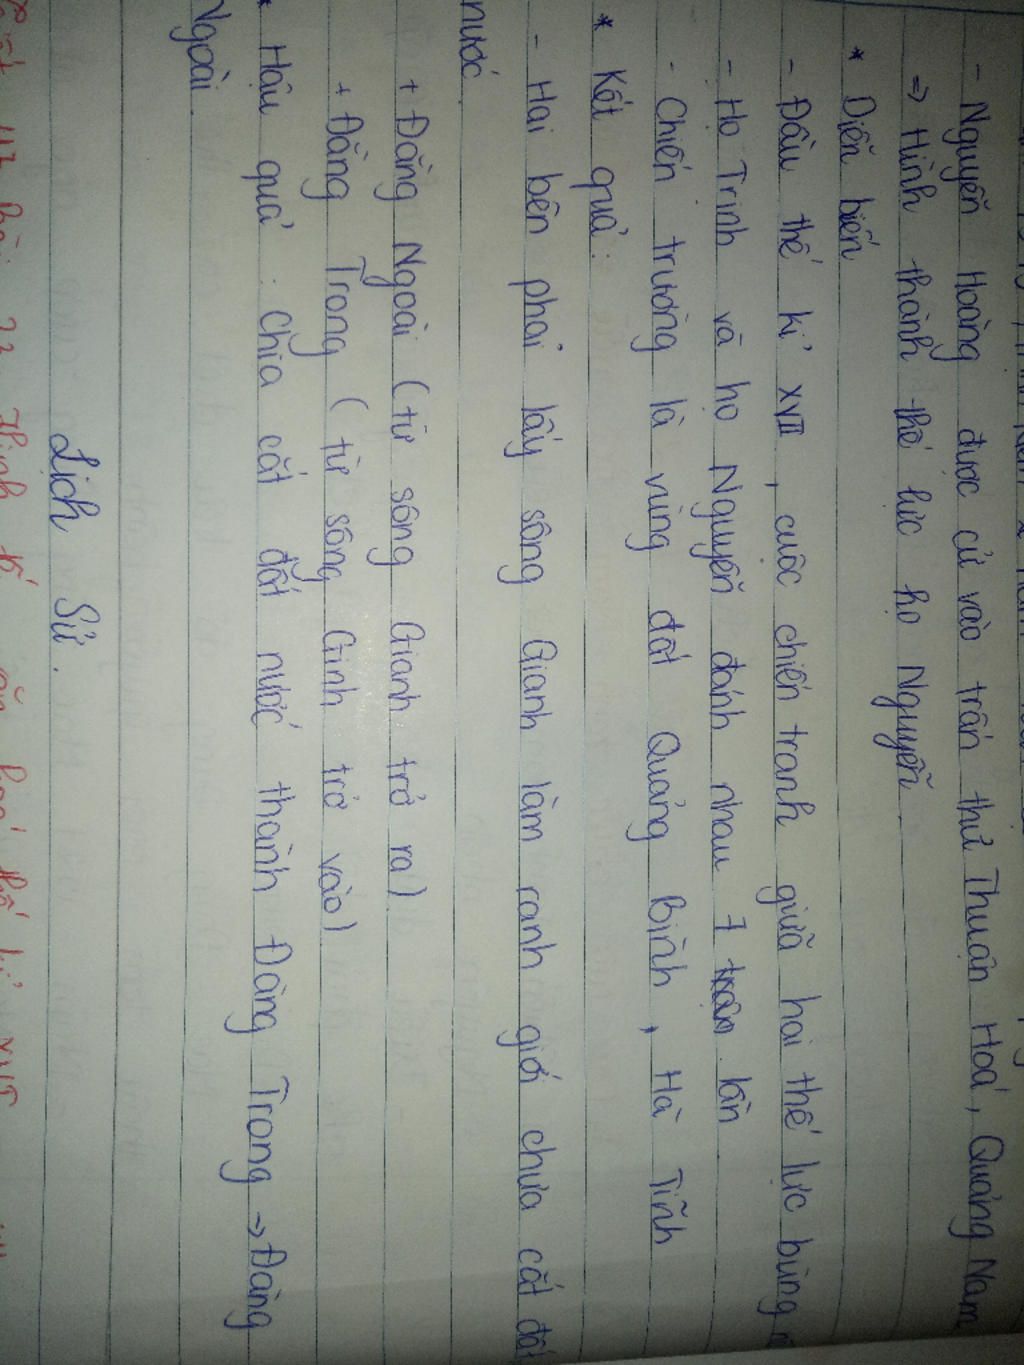 - Nguyễn Hoàng được cử vào trấn thủ Thuận Hoá, Quảng Nam
=> Hình thành thế lực họ Nguyễn
* Diễn biến
- Đầu thế kỉ XVII, cuộc chiến tranh giữa hai thế lực bùng
- Họ Trịnh và họ Nguyễn đánh nhau 7 lần
- Chiến trường là vùng đất Quảng Bình, Hà Tĩnh
* Kết quả:
- Hai bên phải lấy sông Gianh làm ranh giới chưa cắt đất
nước.
+ Đằng Ngoài (từ sông Gianh trở ra)
+ Đằng Trong (từ sông Ginh trở vào)
* Hậu quả: Chia cắt đất nước thành Đàng Trong -> Đàng
Ngoài.
Lịch Sử.